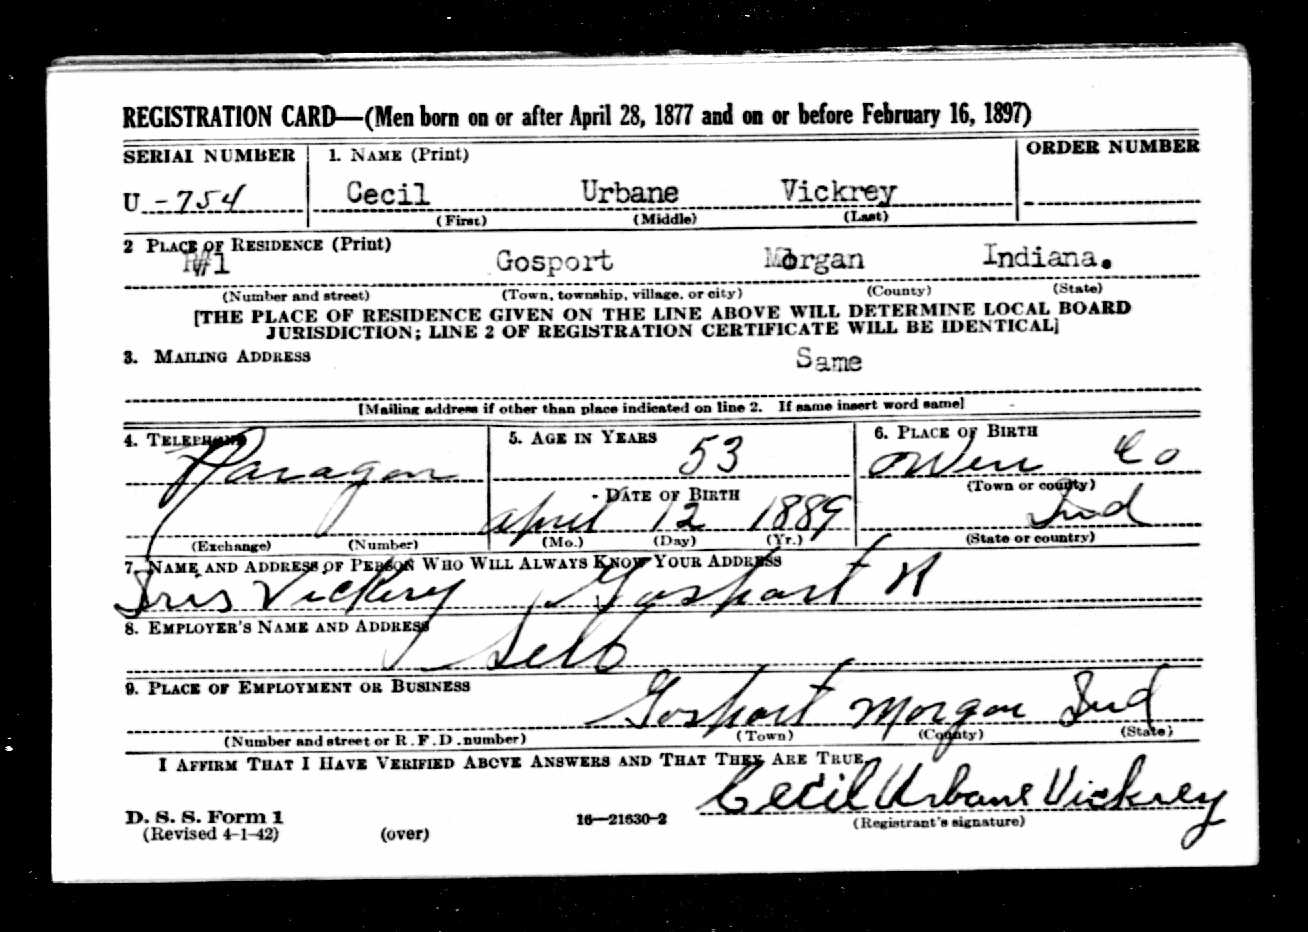 REGISTRATION CARD—(Men born on or after April 28, 1877 and on or before February 16, 1897)
SERIAL NUMBER 1. NAME (Print) ORDER NUMBER
U -754 Cecil Urbane Vickrey
(First) (Middle) (Last)
2 PLACE OF RESIDENCE (Print)
R#1 Gosport Morgan Indiana.
(Number and street) (Town, township, village, or city) (County) (State)
[THE PLACE OF RESIDENCE GIVEN ON THE LINE ABOVE WILL DETERMINE LOCAL BOARD
JURISDICTION; LINE 2 OF REGISTRATION CERTIFICATE WILL BE IDENTICAL]
3. MAILING ADDRESS Same
[Mailing address if other than place indicated on line 2. If same insert word same]
4. TELEPHONE 5. AGE IN YEARS 6. PLACE OF BIRTH
Paragon 53 Owen Co
DATE OF BIRTH (Town or county)
April 12 1889 Ind
(Exchange) (Number) (Mo.) (Day) (Yr.) (State or country)
7. NAME AND ADDRESS OF PERSON WHO WILL ALWAYS KNOW YOUR ADDRESS
Iris Vickery Gosport R
8. EMPLOYER'S NAME AND ADDRESS
Self
9. PLACE OF EMPLOYMENT OR BUSINESS
Gosport Morgan Ind
(Number and street or R.F.D. number) (Town) (County) (State)
I AFFIRM THAT I HAVE VERIFIED ABOVE ANSWERS AND THAT THEY ARE TRUE
Cecil Urbane Vickrey
D. S. S. Form 1 16—21630-2 (Registrant's signature)
(Revised 4-1-42) (over)